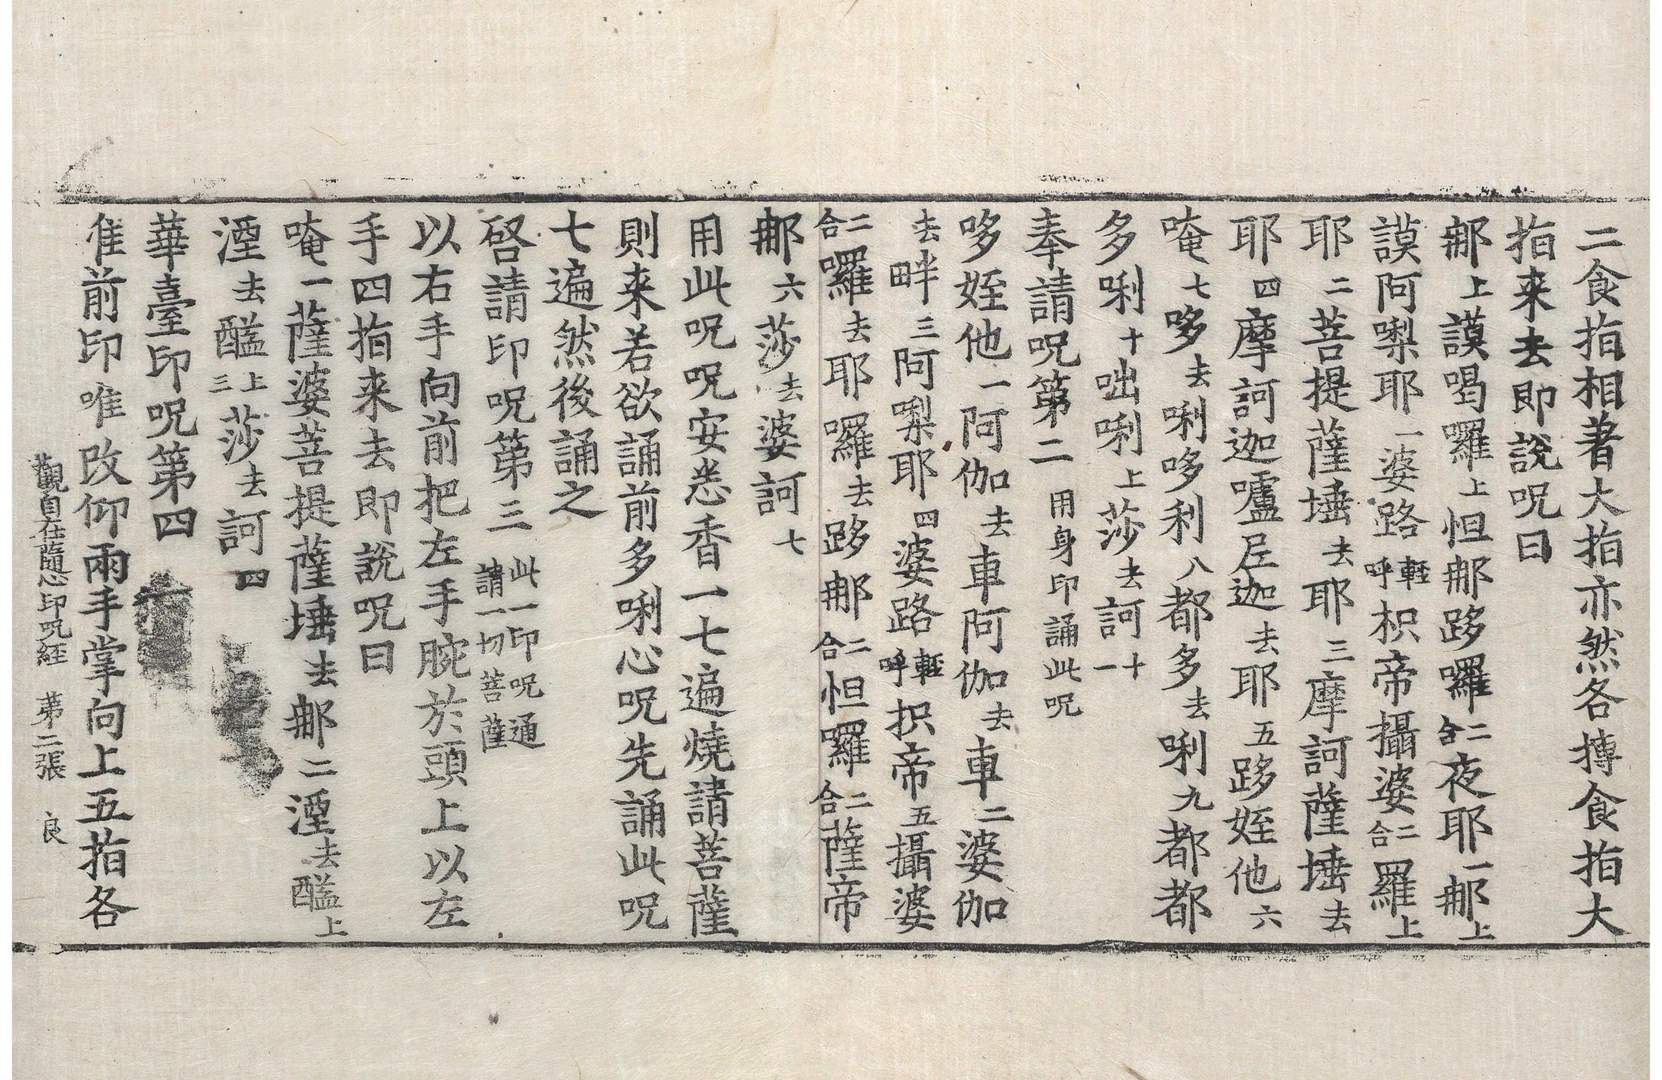 二食指相著大指亦然各摶食指大
指来去即說呪曰
𨚗上謨喝囉上怛𨚗跢囉二合夜耶一𨚗上
謨阿㗚耶一婆路輕呼枳帝攝婆二合羅上
耶二菩提薩埵去耶三摩訶薩埵去
耶四摩訶迦嚧尼迦去耶五跢姪他六
唵七哆去唎哆利八都多去唎九都都
多唎十咄唎上莎去訶十一
奉請呪第二 用身印誦此呪
哆姪他一阿伽去車阿伽去車二婆伽
去畔三阿㗚耶四婆路輕呼枳帝五攝婆
二合囉去耶囉去跢𨚗二合怛羅二合薩帝
𨚗六莎去婆訶七
用此呪呪安悉香一七遍燒請菩薩
則来若欲誦前多唎心呪先誦此呪
七遍然後誦之
啓請印呪第三 此一印呪通請一切菩薩
以右手向前把左手腕於頭上以左
手四指来去即說呪曰
唵一薩婆菩提薩埵去𨚗二湮去醯上
湮去醯上三莎去訶四
華臺印呪第四
准前印唯改仰兩手掌向上五指各
觀自在隨心印呪経 第二張 良